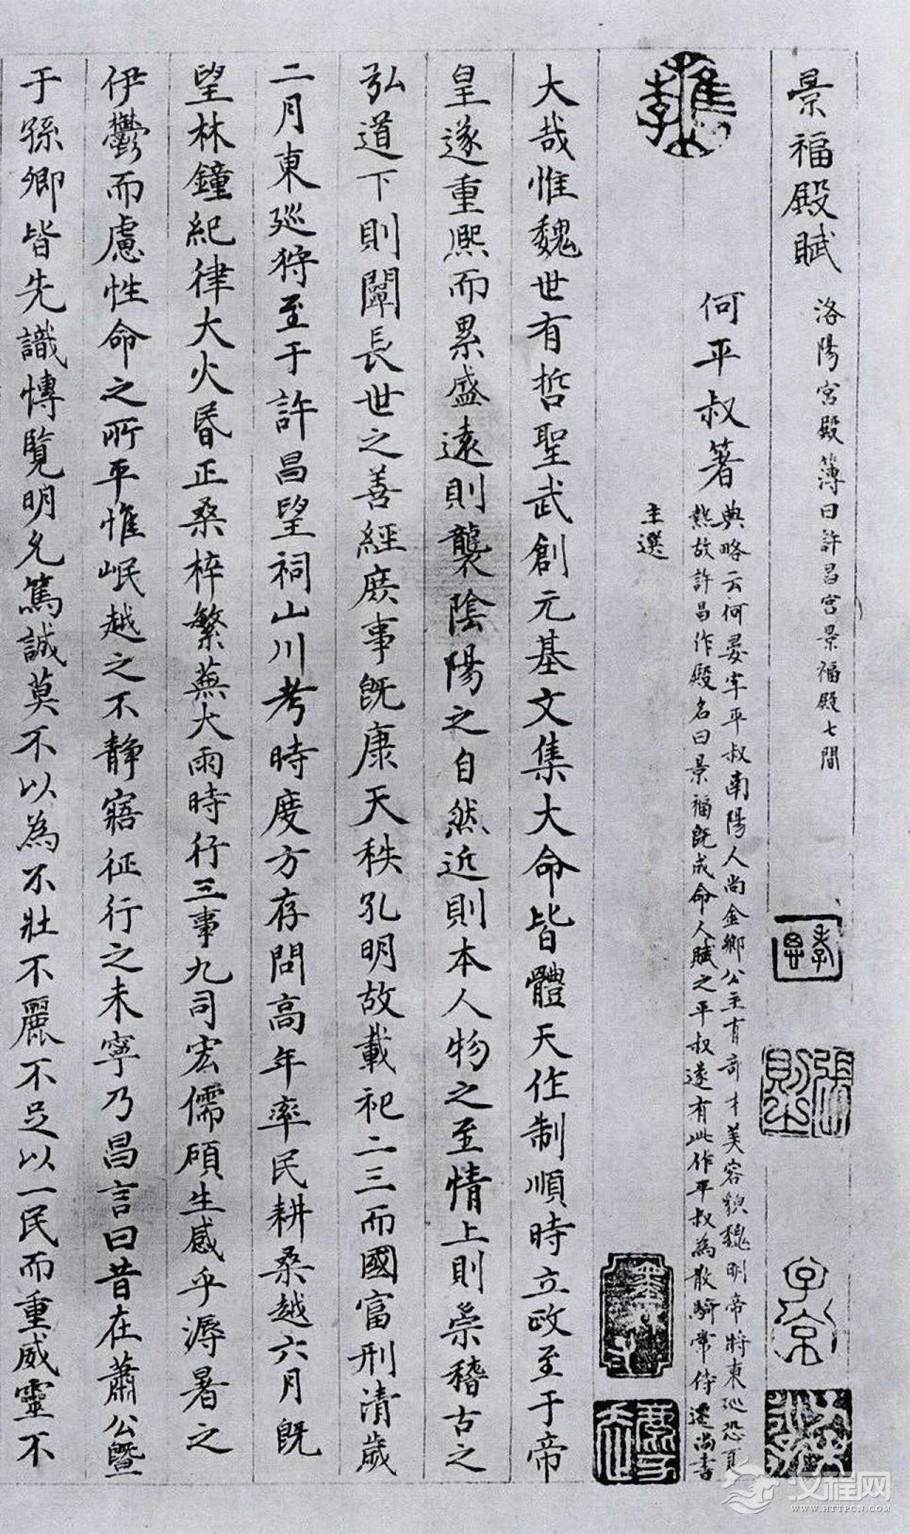 景福殿賦 洛陽宮殿簿曰許昌宮景福殿七間
何平叔著 典略云何晏字平叔南陽人尚金鄉公主有奇才美容貌魏明帝將東巡恐夏
熱故許昌作殿名曰景福既成命人賦之平叔遂有此作平叔為散騎常侍遷尚書
主選
大哉惟魏世有哲聖武創元基文集大命皆體天作制順時立政至于帝
皇遂重熙而累盛遠則襲陰陽之自然近則本人物之至情上則崇稽古之
弘道下則闡長世之善經庶事既康天秩孔明故載祀二三而國富刑清歲
二月東巡狩至于許昌望祠山川考時度方存問高年率民耕桑越六月既
望林鐘紀律大火昏正桑梓繁蕪大雨時行三事九司宏儒碩生感乎溽暑之
伊鬱而慮性命之所平惟岷越之不靜寤征行之未寧乃昌言曰昔在蕭公暨
于孫卿皆先識博覽明允篤誠莫不以為不壯不麗不足以一民而重威靈不
汉程网
WWW.HTTPCN.COM